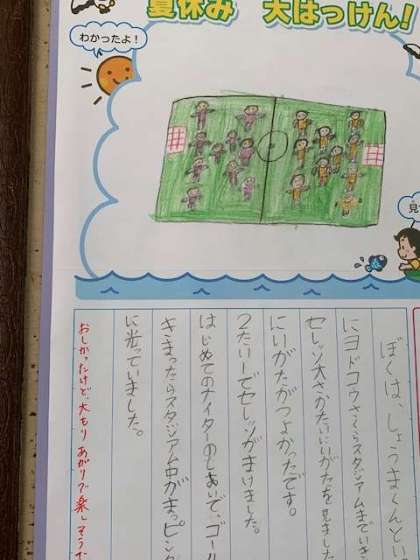 夏休み 大はっけん!
わかったよ!
見
ぼくは、しょうまくんとい
にヨドコウさくらスタジアムまでいき
セレッソ大さかたいにいがたを見ました
にいがたがつよかったです。
2たい1でセレッソがまけました。
はじめてのナイターのしあいで、ゴール
きまったらスタジアム中がまっピンク
に光っていました。
おしかったけど、大もりあがりで楽しそうで